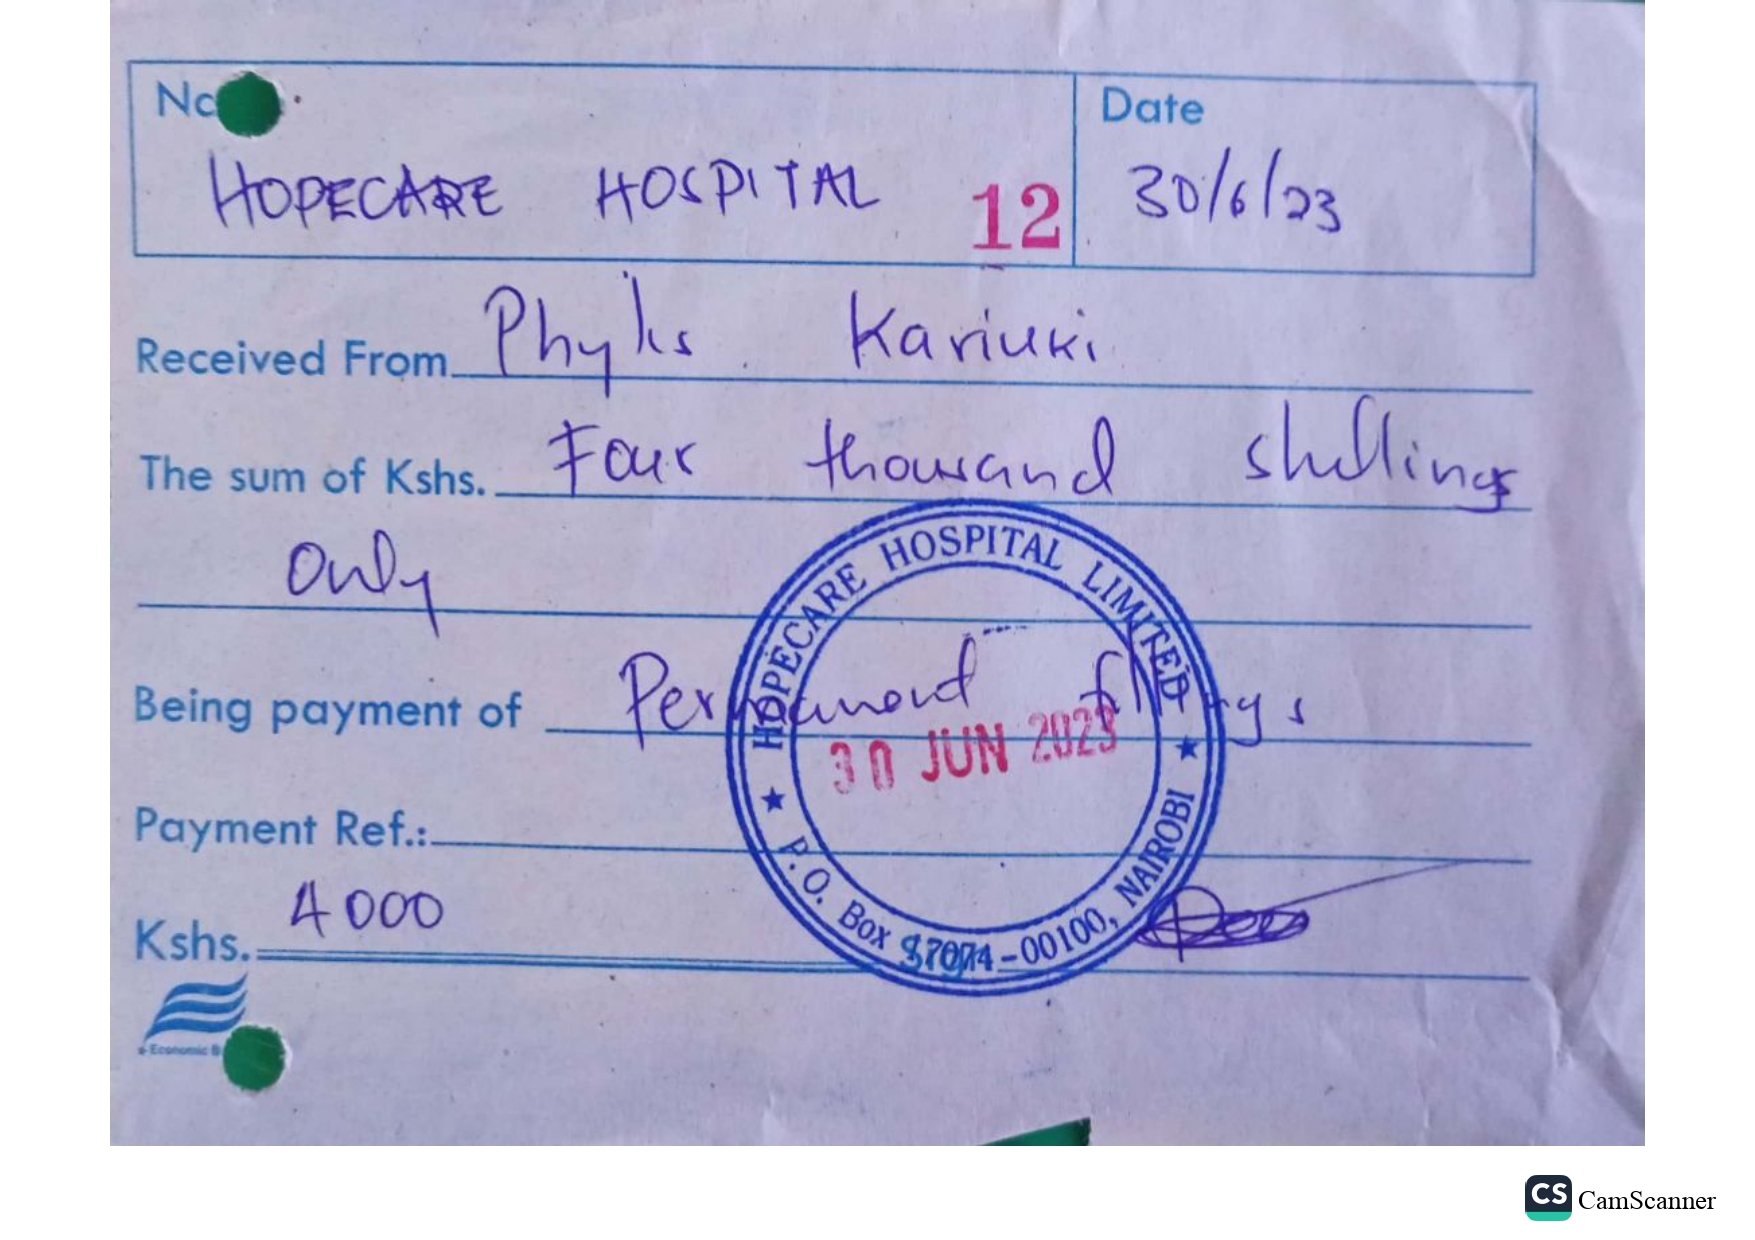 No.
Date
HOPECARE HOSPITAL 12
30/6/23
Received From Phylis Kariuki
The sum of Kshs. Four thousand shillings
Only
Being payment of Permanent fillings
HOPECARE HOSPITAL LIMITED
30 JUN 2023
P.O. Box -00100, NAIROBI
Payment Ref.:
Kshs. 4000
Economic
CS CamScanner